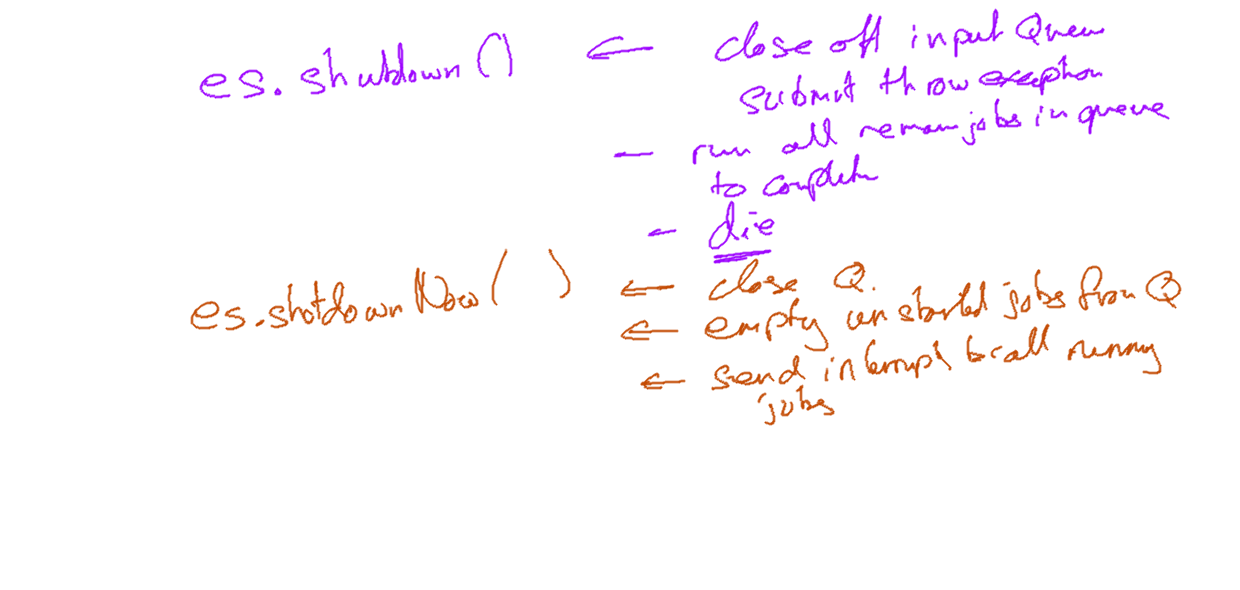 es. shutdown () ← close off input Queue
submit throw exception
- run all remain jobs in queue
to complete
- die
es.shotdownNow( ) ← close Q.
← empty unstarted jobs from Q
← send interrupt to all running
jobs